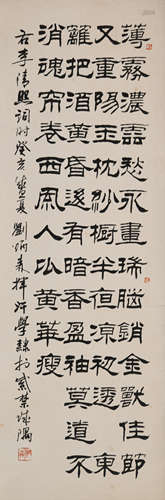 薄霧濃雲愁永晝瑞腦銷金獸佳節
又重陽玉枕紗橱半夜凉初透東
籬把酒黄昏後有暗香盈袖莫道不
消魂帘卷西風人比黄華瘦
右李清照詞时癸亥盛夏劉炳森揮汗學隸於紫禁城隅